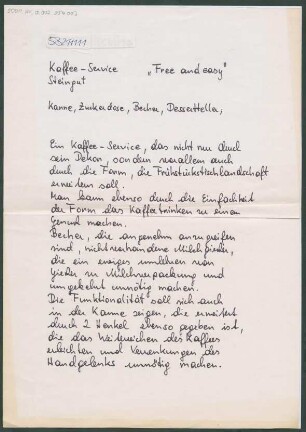 532111
Kaffee-Service „Free and easy"
Steingut
Kanne, Zuckerdose, Becher, Dessertteller,
Ein Kaffee-Service, das nicht nur durch
sein Dekor, sondern vorallem auch
durch die Form, die Frühstückstischlandschaft
erweitern soll.
Man kann ebenso durch die Einfachheit
der Form das Kaffeetrinken zu einem
Genuß machen.
Becher, die angenehm anzugreifen
sind, nichtvorhandene Milchgießer,
die ein ewiges umleeren von
Gießer zu Milchverpackung und
umgekehrt unnötig machen.
Die Funktionalität soll sich auch
in der Kanne zeigen, die erweitert
durch 2 Henkel ebenso gegeben ist,
die das Weiterreichen des Kaffees
erleichten und Verrenkungen des
Handgelenks unnötig machen.